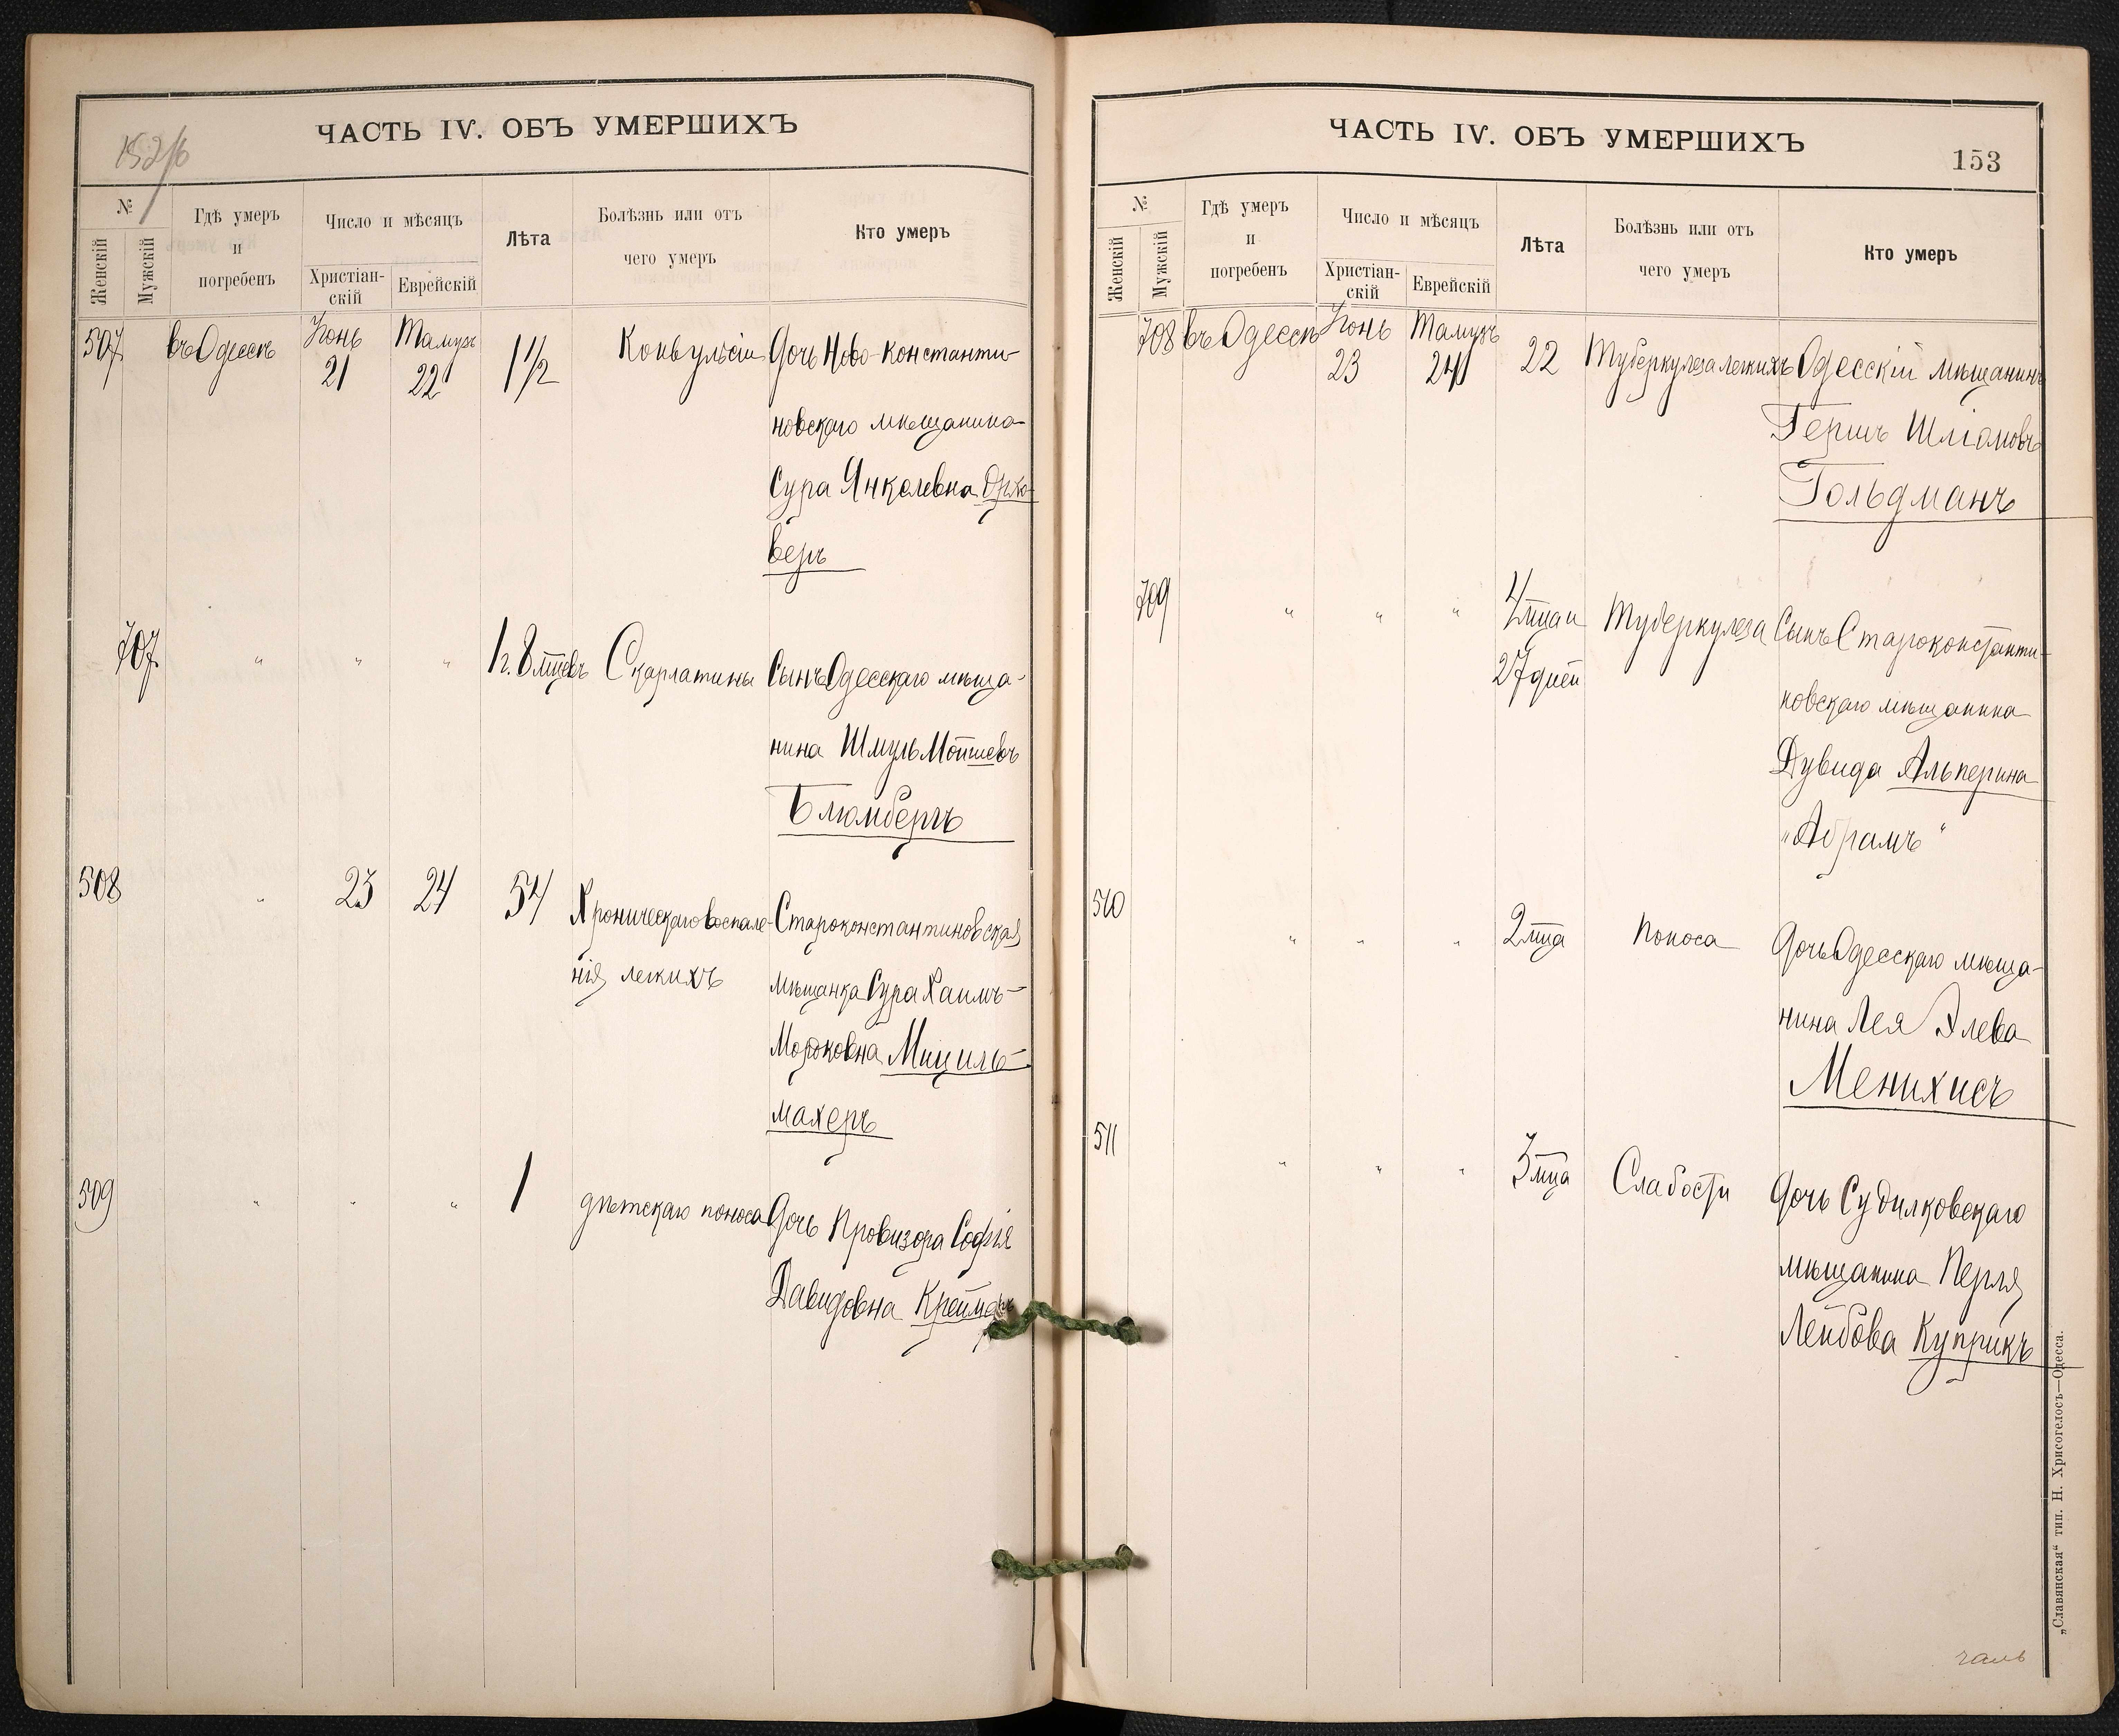 ЧАСТЬ IV. ОБЪ УМЕРШИХЪ
152/б
№
Женскій
Мужскій
Гдѣ умеръ
и
погребенъ
Число и мѣсяцъ
Христіан-
скій
Еврейскій
Лѣта
Болѣзнь или отъ
чего умеръ
Кто умеръ
507 въ Одессѣ Іюнь 21 Тамузъ 22 1½ Конвульсіи Дочь Ново-константи-
новскаго мѣщанина
Сура Янкелевна
веръ
707 " " " 1 г. 8 мцевъ Скарлатины Сынъ Одесскаго мѣща-
нина Шмуль Мотшевъ
Блюмбергъ
508 " 23 24 54 Хроническаго воспале- Староконстантиновская
нія легкихъ мѣщанка Сура Хаимъ-
Мордковна Мицель-
махеръ
509 " " " 1 дѣтскаго поноса Дочь Провизора Софія
Давидовна
ЧАСТЬ IV. ОБЪ УМЕРШИХЪ
153
№
Женскій
Мужскій
Гдѣ умеръ
и
погребенъ
Число и мѣсяцъ
Христіан-
скій
Еврейскій
Лѣта
Болѣзнь или отъ
чего умеръ
Кто умеръ
708 въ Одессѣ Іюнь 23 Тамузъ 24 22 Туберкулеза легкихъ Одесскій мѣщанинъ
Гершъ Шліомовъ
Гольдманъ
709 " " " 4 мца и Туберкулеза Сынъ Староконстанти-
27 дней новскаго мѣщанина
Дувида Альперина
„Абрамъ“
510 " " " 2 мца Поноса Дочь Одесскаго мѣща-
нина Лея Элева
Менихисъ
511 " " " 3 мца Слабости Дочь Судилковскаго
мѣщанина Перля
Лейбова Куприкъ
„Славянская“ тип. Н. Хрисогелосъ—Одесса.